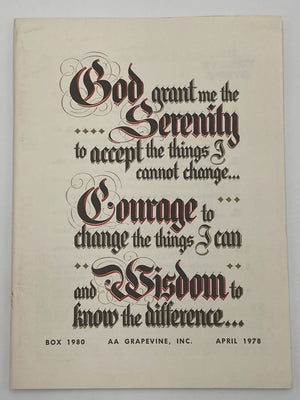 God grant me the
Serenity
to accept the things I
cannot change...
Courage to
change the things I can
and Wisdom to
know the difference...
BOX 1980 AA GRAPEVINE, INC. APRIL 1978